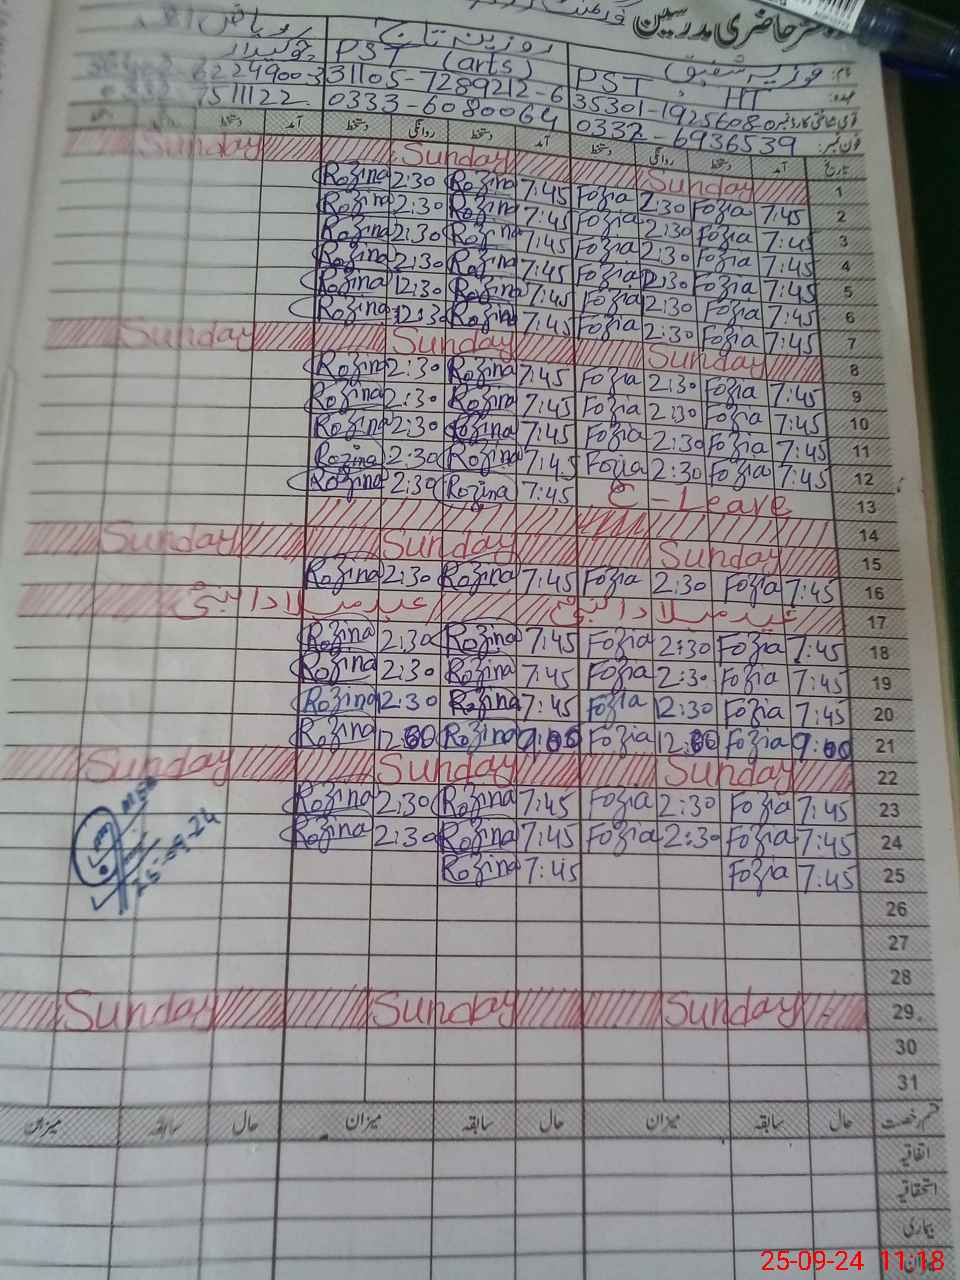 دفتر حاضری مدرسین
نام: فوزیہ شفیق روزینہ تاج
عہدہ: PST HT PST (arts) چوکیدار
قومی شناختی کارڈ نمبر 35301-1925608-0 31105-7289212-6
فون نمبر: 0332-6936539 0333-6080064 7511122
تاریخ آمد دستخط روانگی دستخط آمد دستخط روانگی دستخط آمد دستخط روانگی دستخط
1 Sunday Sunday Sunday
2 7:45 Fozia 2:30 Fozia 7:45 Rozina 2:30 Rozina
3 7:45 Fozia 2:30 Fozia 7:45 Rozina 2:30 Rozina
4 7:45 Fozia 2:30 Fozia 7:45 Rozina 2:30 Rozina
5 7:45 Fozia 12:30 Fozia 7:45 Rozina 2:30 Rozina
6 7:45 Fozia 2:30 Fozia 7:45 Rozina 12:30 Rozina
7 7:45 Fozia 2:30 Fozia 7:45 Rozina 12:30 Rozina
8 Sunday Sunday Sunday
9 7:45 Fozia 2:30 Fozia 7:45 Rozina 2:30 Rozina
10 7:45 Fozia 2:30 Fozia 7:45 Rozina 2:30 Rozina
11 7:45 Fozia 2:30 Fozia 7:45 Rozina 2:30 Rozina
12 7:45 Fozia 2:30 Fozia 7:45 Rozina 2:30 Rozina
13 C - Leave 7:45 Rozina 2:30 Rozina
14
15 Sunday Sunday Sunday
16 7:45 Fozia 2:30 Fozia 7:45 Rozina 2:30 Rozina
17 عید میلاد النبیؐ عید میلاد النبیؐ
18 7:45 Fozia 2:30 Fozia 7:45 Rozina 2:30 Rozina
19 7:45 Fozia 2:30 Fozia 7:45 Rozina 2:30 Rozina
20 7:45 Fozia 12:30 Fozia 7:45 Rozina 12:30 Rozina
21 9:00 Fozia 12:00 Fozia 9:00 Rozina 12:00 Rozina
22 Sunday Sunday Sunday
23 7:45 Fozia 2:30 Fozia 7:45 Rozina 2:30 Rozina
24 7:45 Fozia 2:30 Fozia 7:45 Rozina 2:30 Rozina
25 7:45 Fozia 7:45 Rozina
25-09-24
26
27
28
29 Sunday Sunday Sunday
30
31
قسم رخصت حال سابقہ میزان حال سابقہ میزان حال سابقہ میزان
اتفاقیہ
استحقاقیہ
بیماری
میزان
25-09-24 11:18